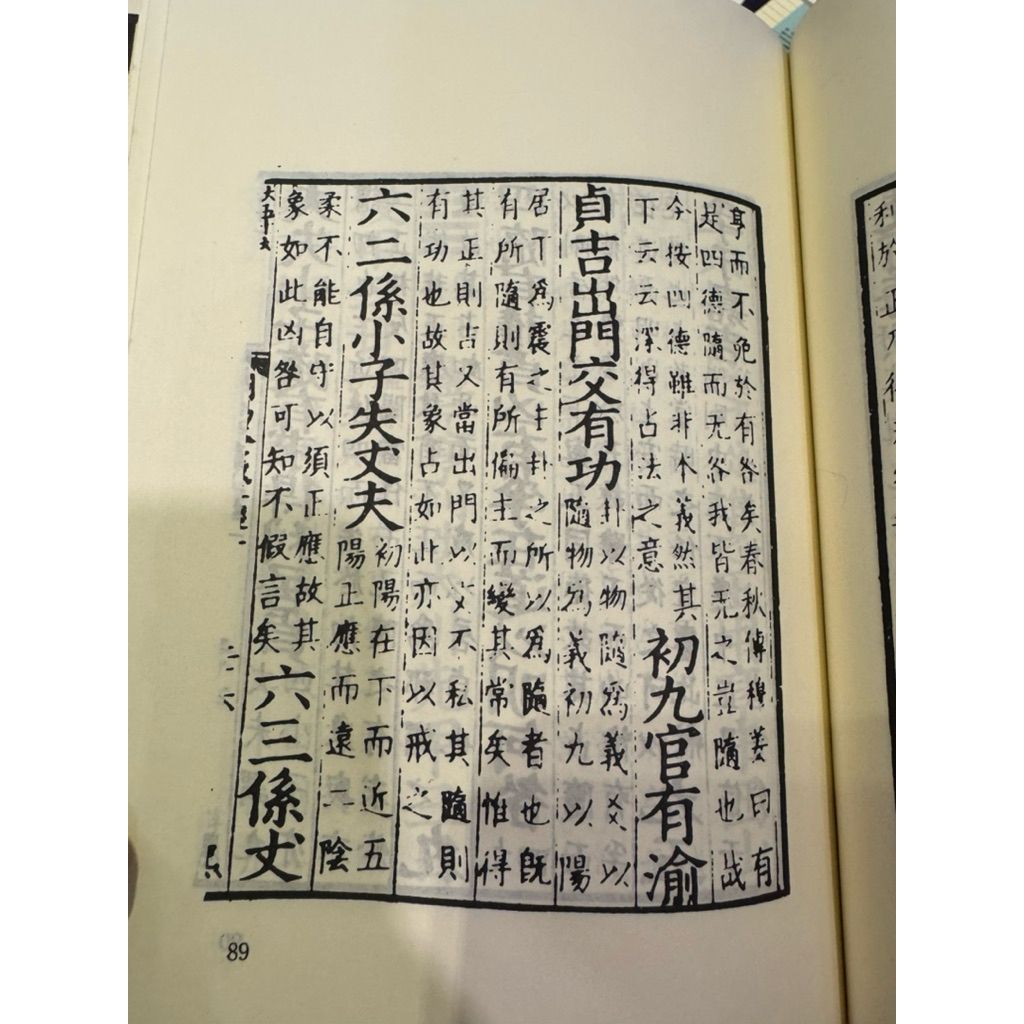 亨而不免於有咎矣春秋傳穆姜曰有
是四德隨而无咎我皆无之豈隨也哉
今按四德雖非本義然其
下云云深得占法之意
初九官有渝
貞吉出門交有功
卦以物隨爲義爻以
隨物爲義初九以陽
居下爲震之主卦之所以爲隨者也既
有所隨則有所偏主而變其常矣惟得
其正則吉又當出門以交不私其隨則
有功也故其象占如此亦因以戒之
六二係小子失丈夫
初陽在下而近五
陽正應而遠二陰
柔不能自守以須正應故其
象如此凶咎可知不假言矣
六三係丈
利於
89